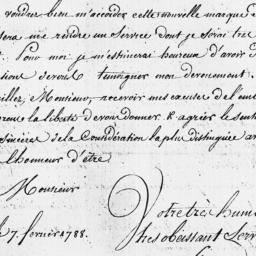 voudrez bien m'accorder cette nouvelle marque d
sera me rendre un Service dont je serai tres
Pour moi je m'estimerai heureux d'avoir
devoir temoigner mon devouement.
illez, Monsieur, recevoir mes excuses de l'ent
prens la liberté de vous donner & agréer le sent
sincères de la Considération la plus distinguée a
l'honneur d'être
Monsieur
Votre très hum
le 7. fevrier 1788.
tres obeissant Serv